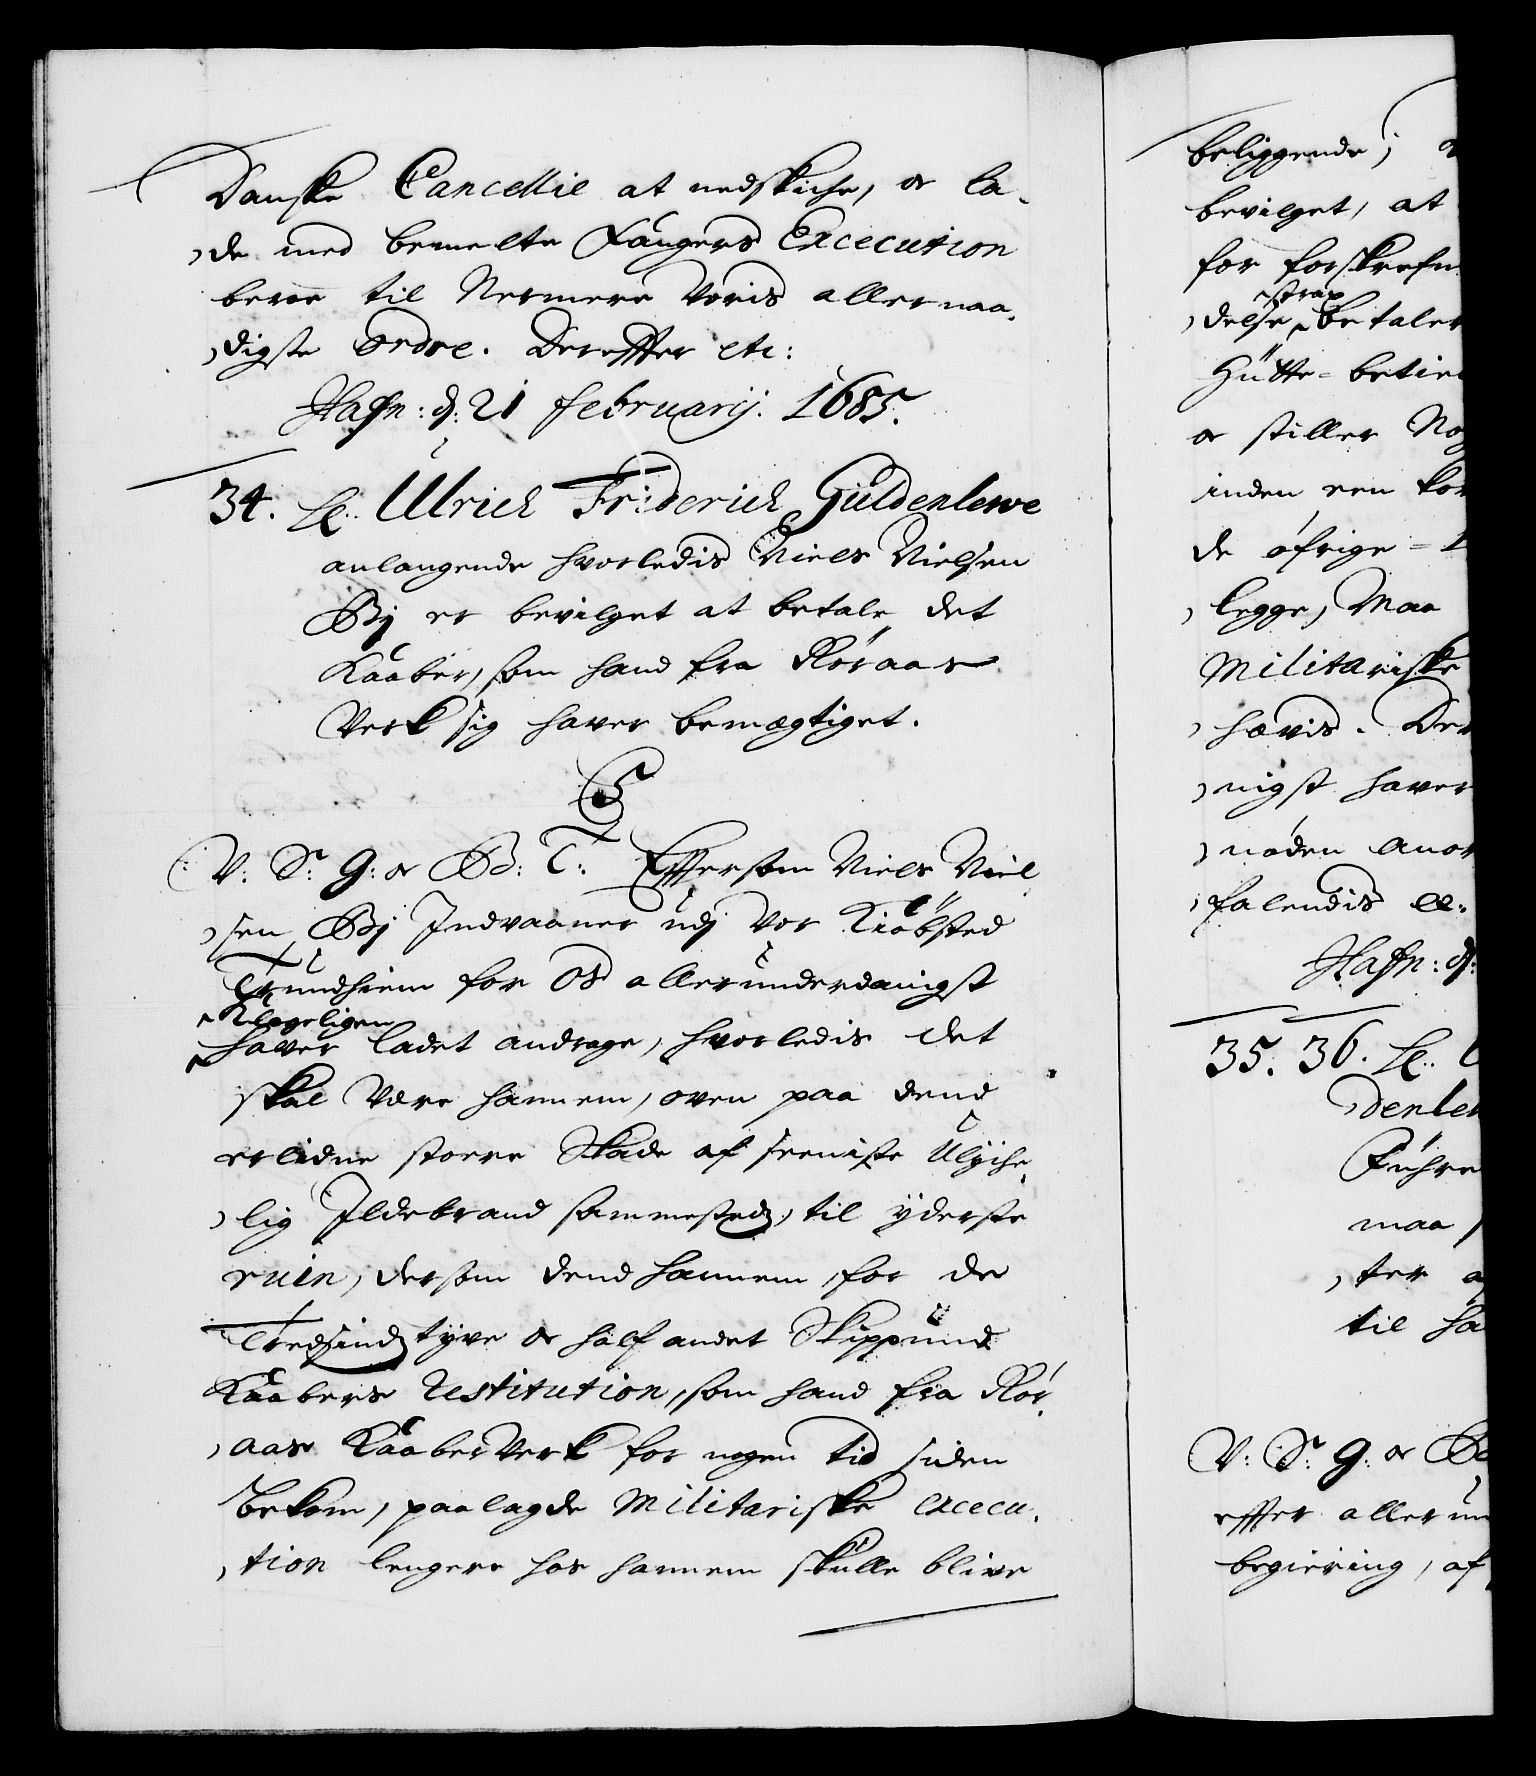 Danske Cancellie at nedskiche, oc la,
,de med bemelte Fangers Excecution
beroe til Nermere Voris allernaa,
,digste Ordre. Dereffter etc:
Hafn: d: 21 februarij. 1685.
34. Sl. Ulrich Friderich Güldenlewe
anlangende hvorledis Niels Nielsen
By er bevilget at betale det
Kaaber, som hand fra Röraas
Verk sig haver bemægtiget.
C5
V: S: G: oc B: T: Effersom Niels Niel
,sen By Indvaaner udj Vor Kiöbsted
Trundhiem for Os allerunderdanigst
Klageligen
haver ladet andrage, hvorledis det
skal Være hannem, oven paa dend
erlidne stoere Skade af seeniste Ulyche,
,lig Ildebrand sammesteds, til yderste
ruin, dersom dend hannem for de
Tredsindstyve oc half andet Skippund
Kaabers Restitution, som hand fra Rör,
,aas KaaberVerk for nogen tid siden
bekom, paalagde Militariske excecu,
,tion lengere hos hannem skulle blive
beliggende,
bevilget, at
for forskrefn
strax
,delse betaler
Hütte-betien
oc stiller No
inden een kor
de öfrige
,legge, Maa
Militariske
,hævis. Der
,nigst haver
,nöden anor
,falendis etc.
Hafn: d:
35. 36. Sl. U
,denlew
Führe
maa
,ter
til ha
V: S: G: oc B
effter allerun
begiering, af